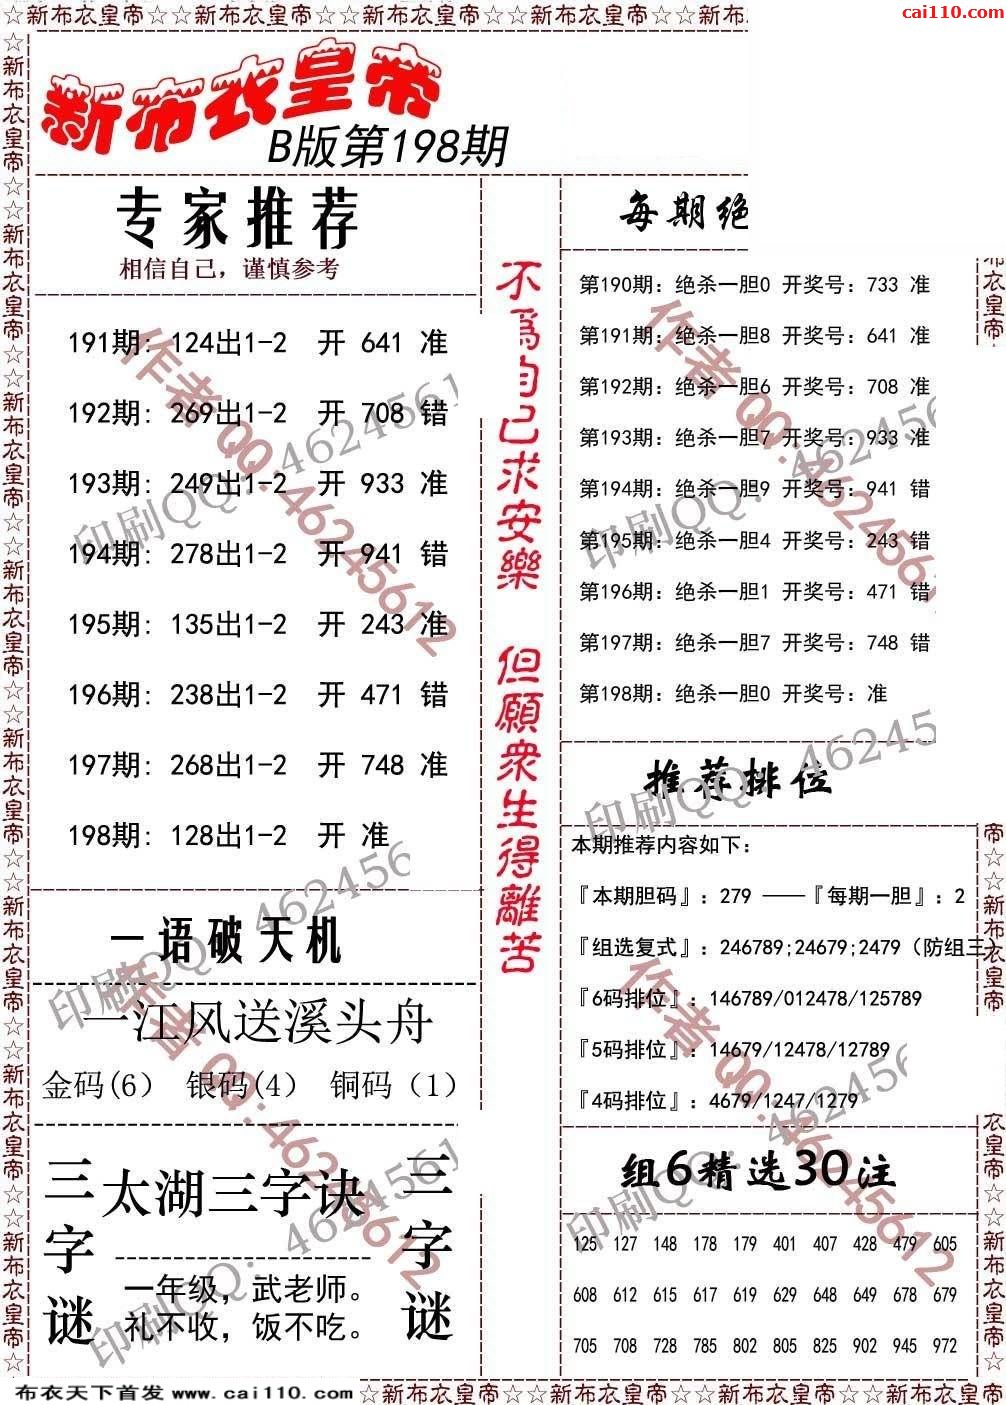 ☆新布衣皇帝☆新布衣皇帝☆新布衣皇帝☆新布衣皇帝☆新布衣皇帝☆新布
cai110.com
新布衣皇帝
B版第198期
专家推荐
相信自己，谨慎参考
191期: 124出1-2 开 641 准
192期: 269出1-2 开 708 错
193期: 249出1-2 开 933 准
194期: 278出1-2 开 941 错
195期: 135出1-2 开 243 准
196期: 238出1-2 开 471 错
197期: 268出1-2 开 748 准
198期: 128出1-2 开 准
一语破天机
一江风送溪头舟
金码(6) 银码(4) 铜码(1)
三字谜
太湖三字诀
一年级，武老师。
礼不收，饭不吃。
三字谜
不為自己求安樂 但願衆生得離苦
每期绝
第190期：绝杀一胆0 开奖号：733 准
第191期：绝杀一胆8 开奖号：641 准
第192期：绝杀一胆6 开奖号：708 准
第193期：绝杀一胆7 开奖号：933 准
第194期：绝杀一胆9 开奖号：941 错
第195期：绝杀一胆4 开奖号：243 错
第196期：绝杀一胆1 开奖号：471 错
第197期：绝杀一胆7 开奖号：748 错
第198期：绝杀一胆0 开奖号：准
推荐排位
本期推荐内容如下：
『本期胆码』：279 ——『每期一胆』：2
『组选复式』：246789;24679;2479（防组三）
『6码排位』：146789/012478/125789
『5码排位』：14679/12478/12789
『4码排位』：4679/1247/1279
组6精选30注
125 127 148 178 179 401 407 428 479 605
608 612 615 617 619 629 648 649 678 679
705 708 728 785 802 805 825 902 945 972
作者QQ:46245612
印刷QQ：46245612
布衣天下首发 www.cai110.com ☆新布衣皇帝☆新布衣皇帝☆新布衣皇帝☆新布衣皇帝☆